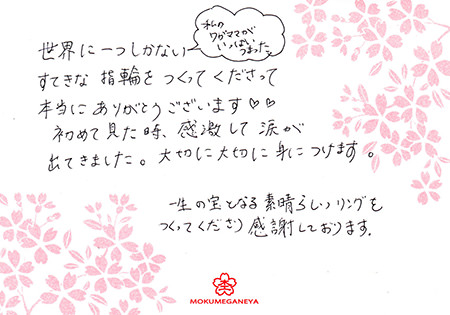 世界に一つしかない
私の
ワガママが
いっぱい
つまった
すてきな 指輪を つくってくださって
本当に ありがとうございます♡♡
初めて見た時、感激して 涙が
出てきました。大切に大切に身につけます。
一生の宝となる素晴らしいリングを
つくってくださり 感謝しております.
MOKUMEGANEYA